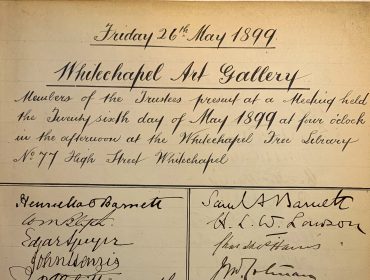 Friday 26th May 1899
Whitechapel Art Gallery
Members of the Trustees present at a Meeting held
the Twenty sixth day of May 1899 at four o'clock
in the afternoon at the Whitechapel Free Library
No 77 High Street Whitechapel
Henrietta O Barnett
Edgar Speyer
Saml A Barnett
H. L. W. Lawson